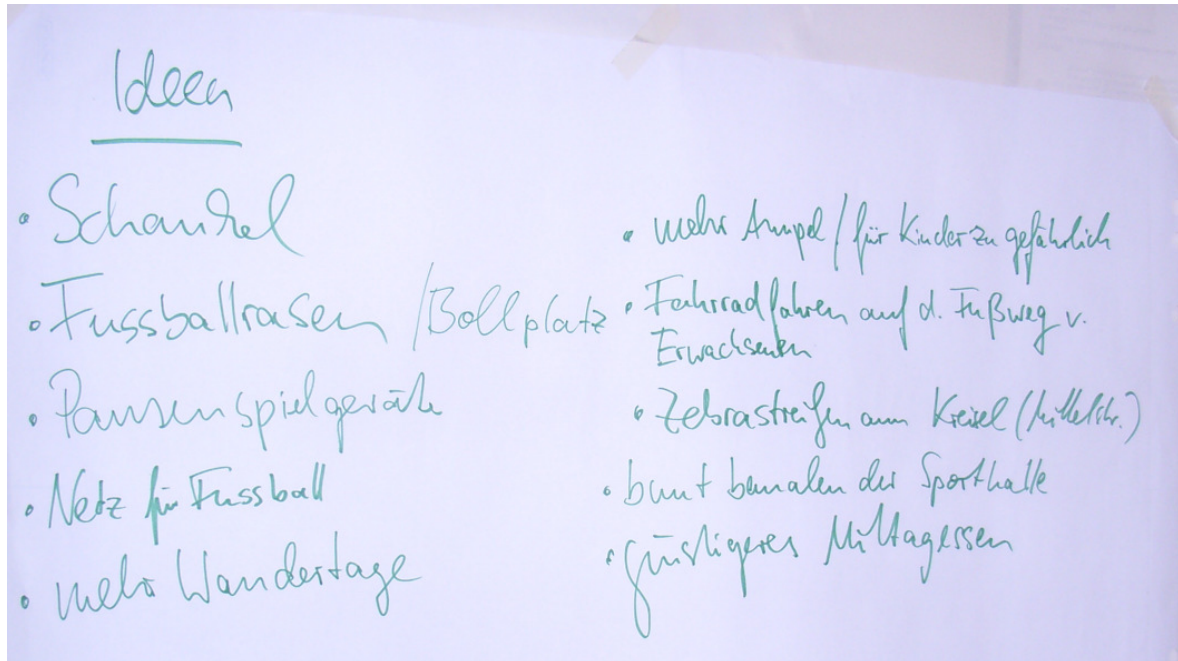 Ideen
• Schaukel
• Fussballrasen /Bollplatz
• Pausenspielgeräte
• Netz für Fussball
• mehr Wandertage
• mehr Ampel / für Kinder zu gefährlich
• Fahrradfahren auf d. Fußweg v.
Erwachsenen
• Zebrastreifen am Kreisel (Mittelstr.)
• bunt bemalen der Sporthalle
• günstigeres Mittagessen